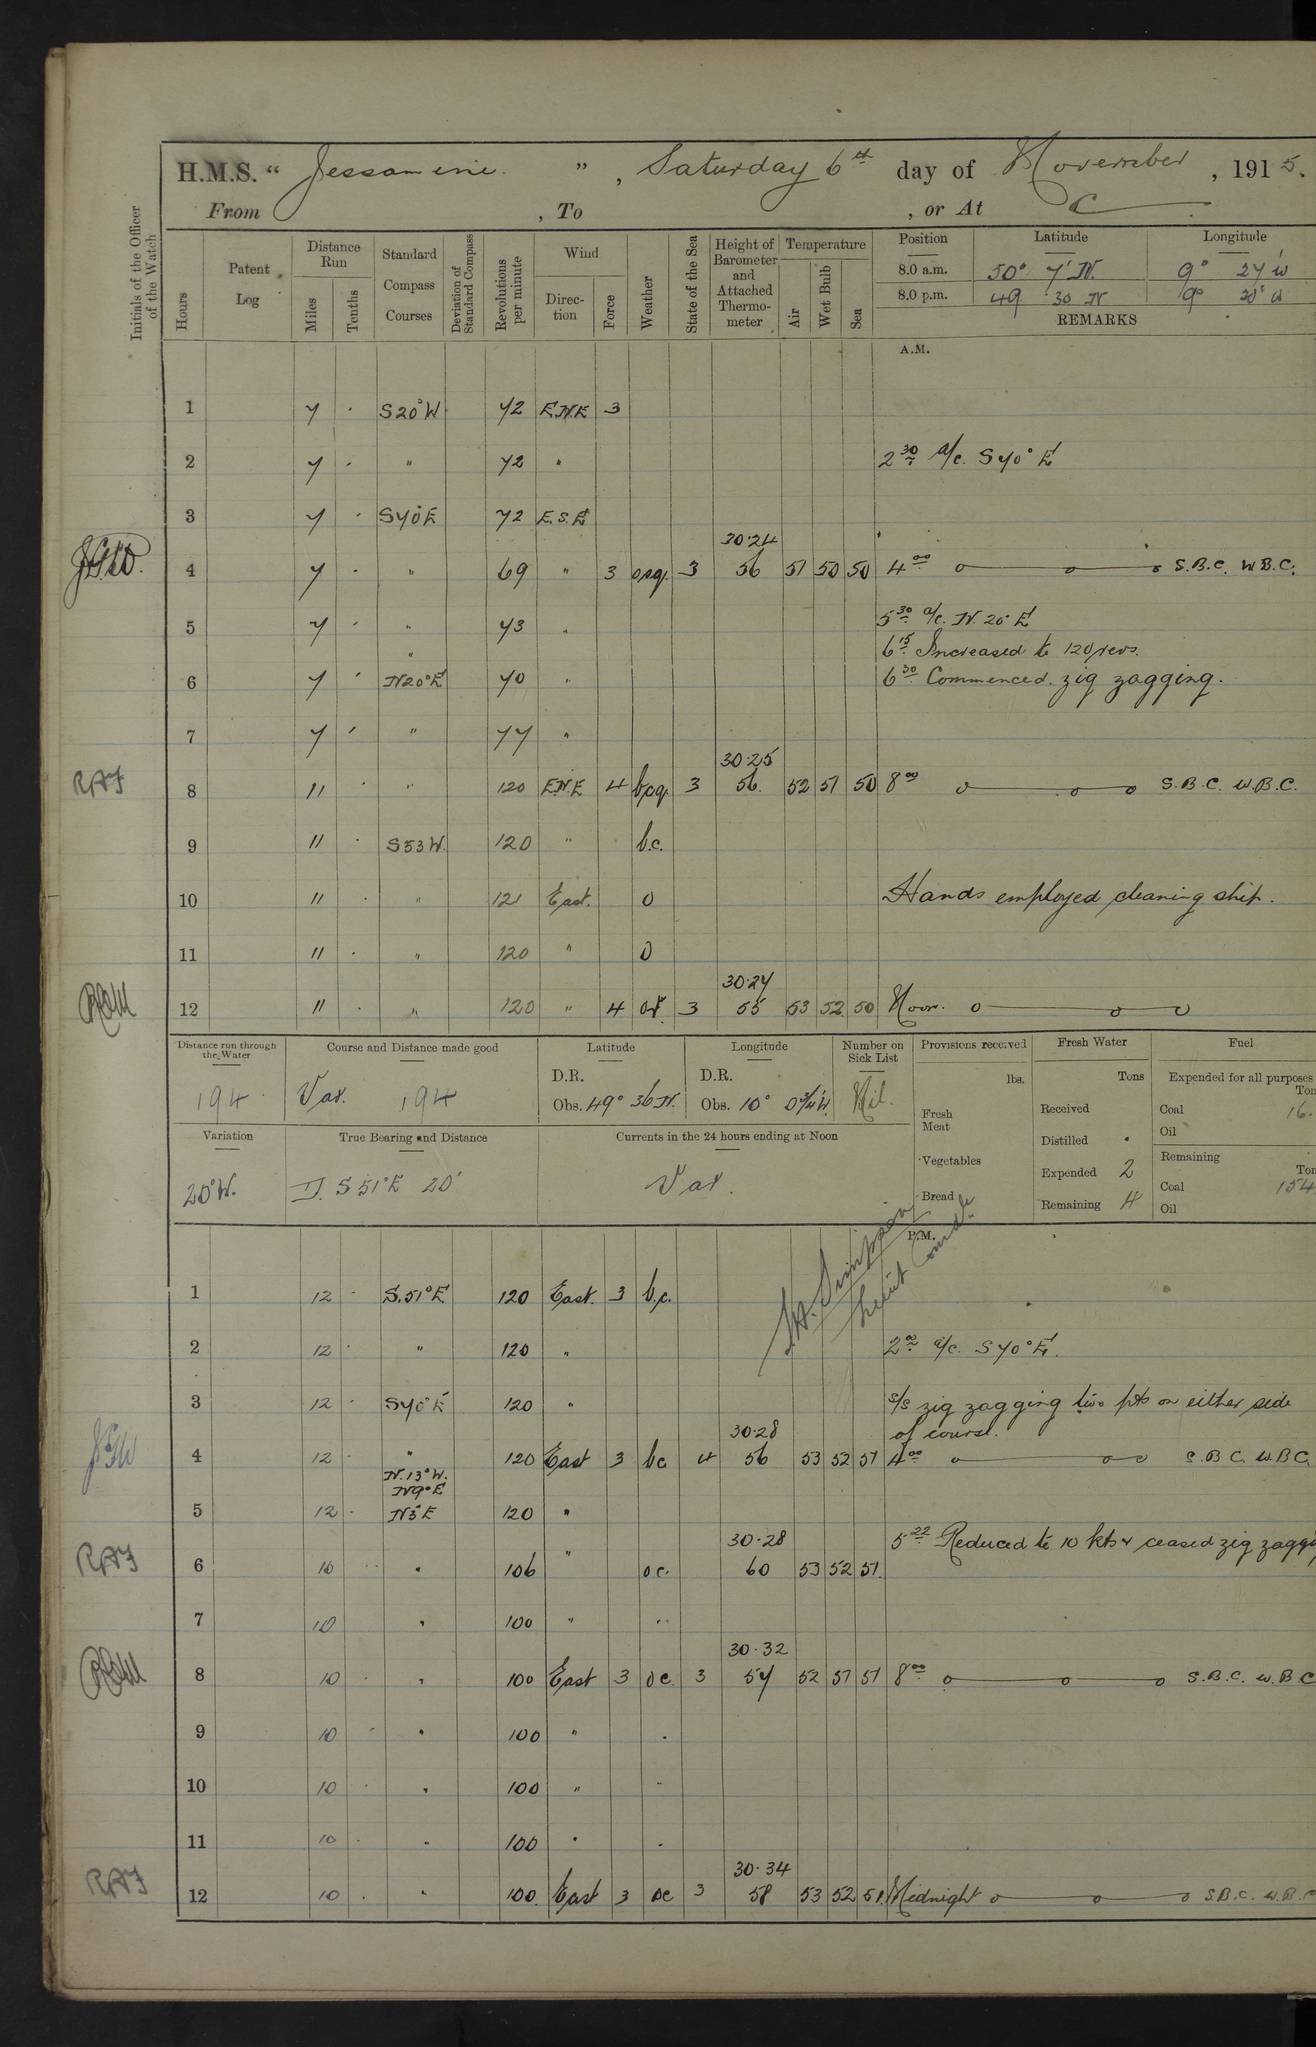 H.M.S. “ Jessamine ” , Saturday 6th day of November , 1915.
From , To , or At
Initials of the Officer of the Watch
Hours Patent Log Distance Run Miles Tenths Standard Compass Courses Deviation of Standard Compass Revolutions per minute Wind Direc-tion Force Weather State of the Sea Height of Barometer and Attached Thermo-meter Temperature Air Wet Bulb Sea
Position Latitude Longitude
8.0 a.m. 50° 7' N. 9° 27' W
8.0 p.m. 49 30 N 9° 20' W
REMARKS
A.M.
1 7 · S20°W 72 E.N.E 3
2 7 · " 72 " 2 30 a/c. S70°E
3 7 · S70°E 72 E.S.E
30·24
4 7 · " 69 " 3 opq. 3 56 51 50 50 4 00 S.B.C. W.B.C.
5 7 · " 73 " 5 30 a/c. N.20°E
6 15 Increased to 120 revs.
6 7 · N20°E 70 " 6 30 Commenced zig zagging.
7 7 · " 77 "
30·25
RAJ 8 11 · " 120 E.N.E 4 bpq. 3 56 52 51 50 8 00 S.B.C. W.B.C.
9 11 · S53W. 120 " b.c.
10 11 · " 121 East. o Hands employed cleaning ship.
11 11 · " 120 " o
30·27
12 11 · " 120 " 4 or. 3 55 53 52 50 Noon.
Distance run through the Water Course and Distance made good Latitude Longitude Number on Sick List Provisions received Fresh Water Fuel
194 Var. 194
D.R. D.R. Nil. lbs. Tons Expended for all purposes Ton
Obs. 49° 36 N. Obs. 10° W.
Fresh Meat Received Coal 16.
Oil
Variation True Bearing and Distance Currents in the 24 hours ending at Noon
Distilled ·
20°W. S 51°E 20' Var.
Vegetables Expended 2 Remaining Ton
Coal 154
Bread Remaining 4 Oil
Simpson
Lieut Comdr
P.M.
1 12 · S.51°E 120 East. 3 b.c.
2 12 · " 120 " 2 00 a/c. S70°E.
3 12 · S70°E 120 " s/s zig zagging two pts on either side
30·28 of course.
4 12 · " 120 East 3 bc 4 56 53 52 51 4 00 S.B.C. W.B.C.
N.13°W.
N9°E
5 12 · N5°E 120 "
30·28 5 22 Reduced to 10 kts & ceased zig zaggi
RAJ 6 10 · " 106 " oc. 60 53 52 51.
7 10 " 100 " "
30·32
8 10 · " 100 East 3 oc. 3 57 52 51 51 8 00 S.B.C. W.B.C
9 10 · " 100 " "
10 10 · " 100 " "
11 10 · " 100 " "
30·34
RAJ 12 10 · " 100. East 3 oc 3 58 53 52 51. Midnight S.B.C. W.B.C